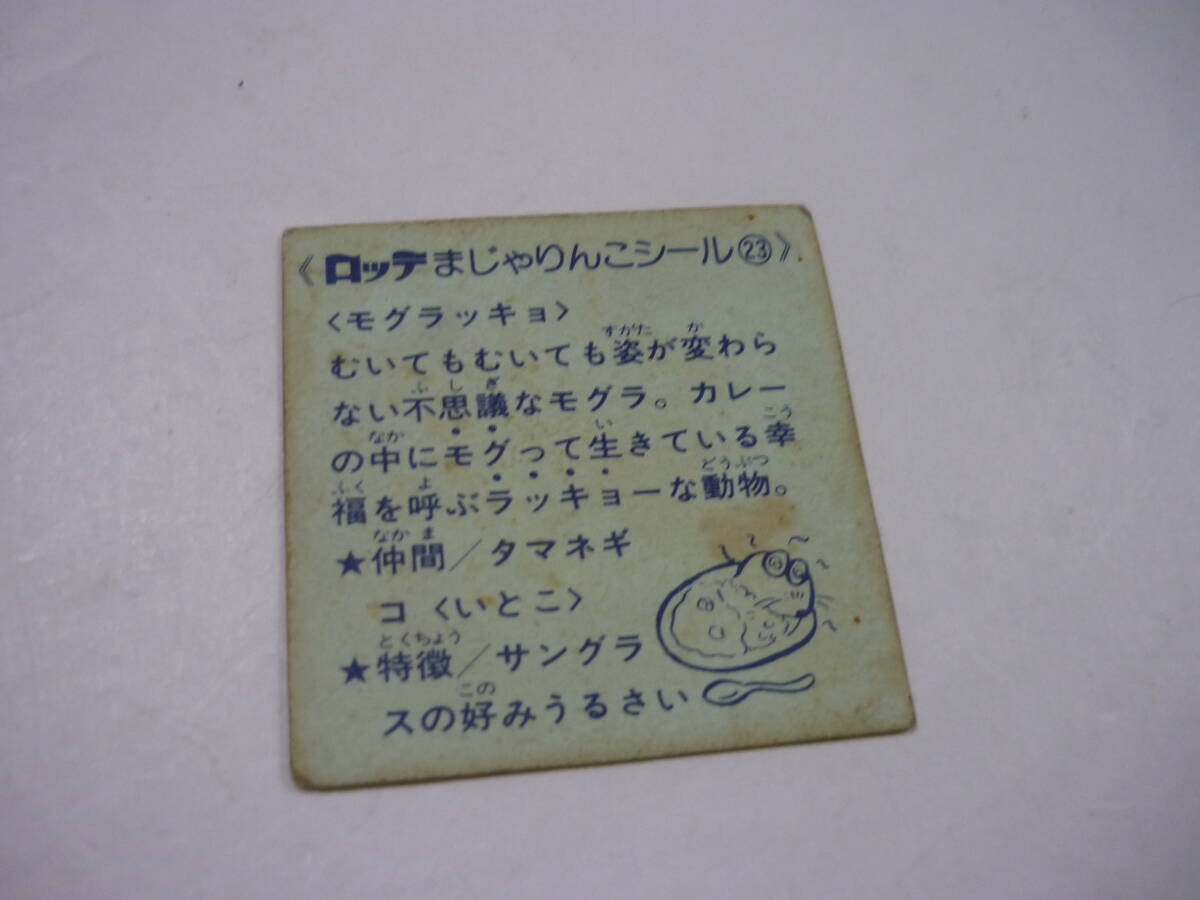 《ロッテまじゃりんこシール㉓》
〈モグラッキョ〉
むいてもむいても姿が変わら
ない不思議なモグラ。カレー
の中にモグって生きている幸
福を呼ぶラッキョーな動物。
★仲間／タマネギ
コ〈いとこ〉
★特徴／サングラ
スの好みうるさい